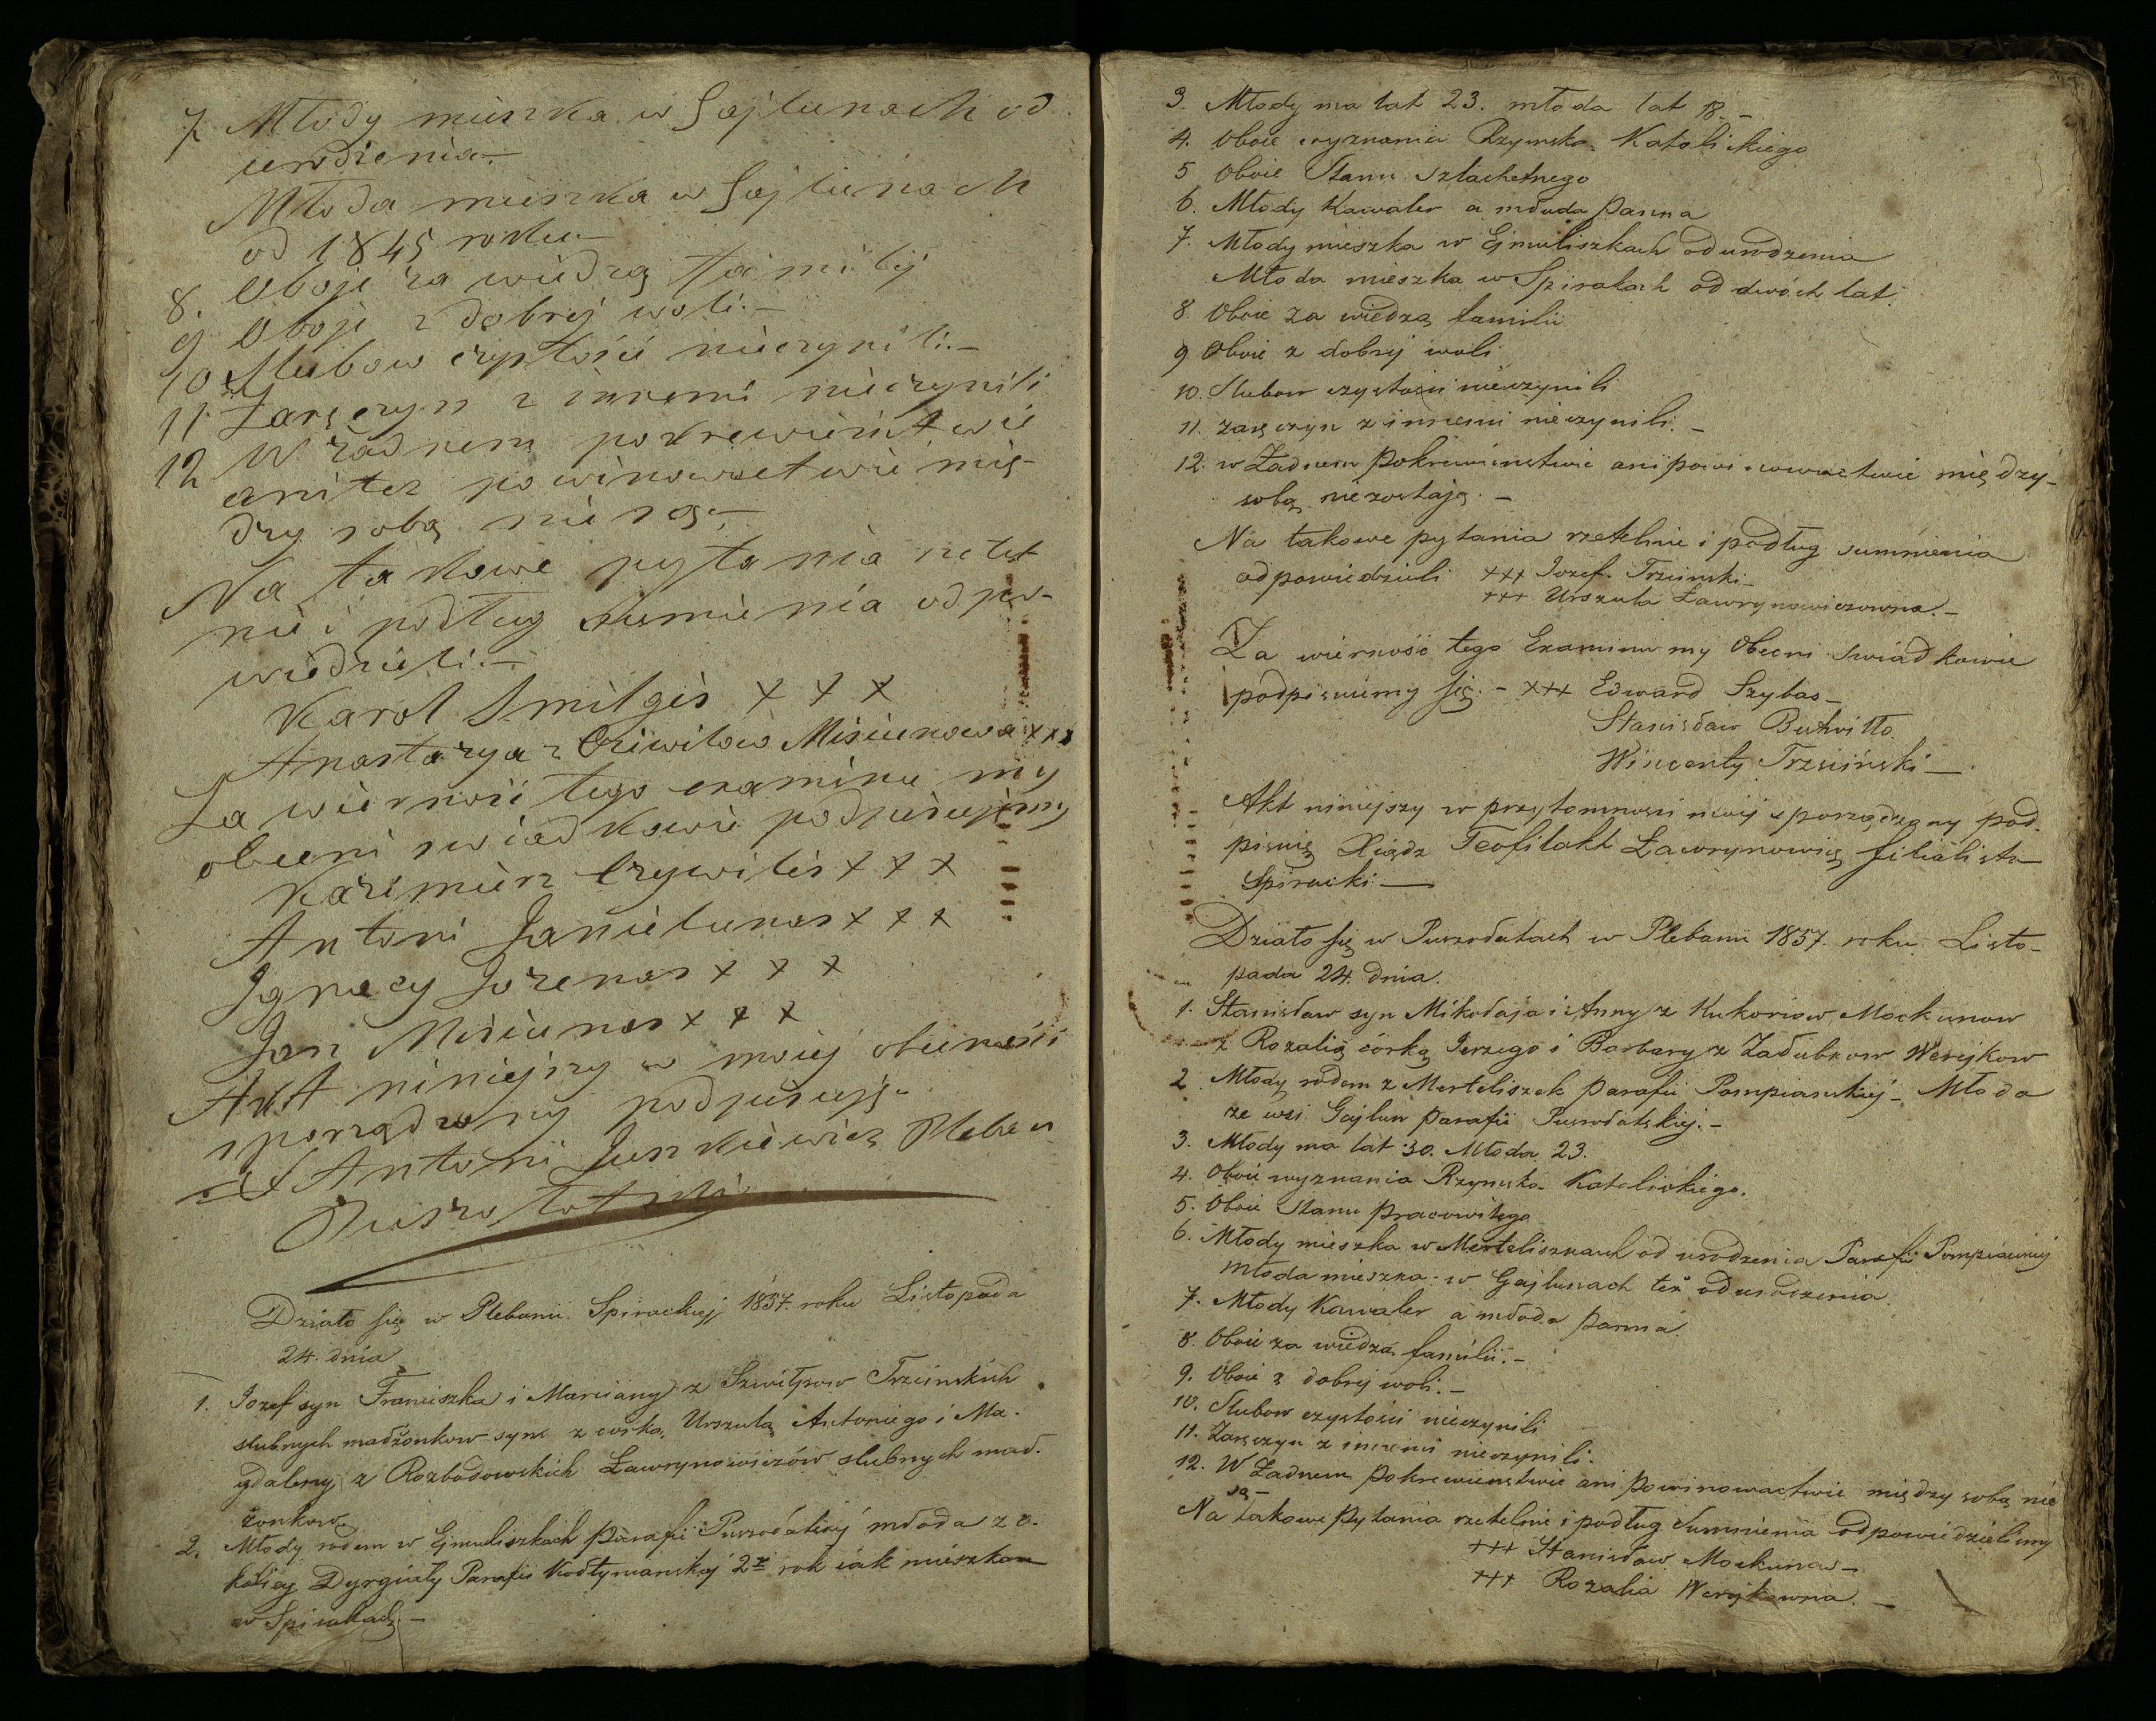 7 Młody mieszka w Gajlunach od
urodzenia.-
Młoda mieszka w Gajlunach
od 1845 roku-
8. Oboje za wiedzą familij
9 Oboje z dobrej woli.-
10 Slubow czystości nieczynili.-
11 Zaręczyn z innemi nieczynili
12 W żadnem pokrewieństwie
anitez powinowactwie mię-
dzy sobą nie są.-
Na takowe pytania rzetel
nie i podług sumienia odpo-
wiedzieli.-
Karol Smilgis + + +
Anastazya z Misiunowa +++
Za wierność tego examinu my
obecni swiadkowie podpisujemy
Kazimierz Czywilis + + +
Antoni Danielunas + + +
Ignacy Jozenas + + +
Jan Misiunas + + +
Akt niniejszy w mojej obecności
sporządzony podpisuję-
X Antoni Juszkiewicz Pleban
Puszołatski
Działo się w Plebanii Spirackiej 1857. roku Listopada
24. dnia
1. Jozef syn Franciszka i Marcianny z Szwilpow Trzcinskich
slubnych madżonkow syn z corką Urszulą Antoniego i Ma-
gdaleny z Rozbadowskich Ławrynowiczów slubnych mad-
żonkow
2. Młody rodem w Ejmuliszkach parafii Puszołatskiej młoda z o-
kolicy Dyrgiaty Parafii Kołtynianskiej 2gi rok iak mieszka
w Spirakach.-
3. Młody ma lat 23. młoda lat 18.-
4. Oboie wyznania Rzymsko Katolickiego
5 Oboie Stanu szlachetnego
6. Młody Kawaler a młoda Panna
7. Młody mieszka w Ejmuliszkach od urodzenia
Młoda mieszka w Spirakach od dwóch lat.
8. Oboie za wiedzą familii
9 Oboie z dobrej woli
10. Slubow czystosci nieczynili
11. zaręczyn z innemi nieczynili.-
12. w Żadnem Pokrewienstwie ani powinowactwie między-
sobą niezostają.-
Na takowe pytania rzetelnie i podług sumnienia
odpowiedzieli +++ Jozef Trzcinski-
+++ Urszula Ławrynowiczowna.-
Za wierność tego Examinu my Obecni swiadkowie
podpisuiemy się.- +++ Edward Szylas-
Stanisław Butwiłło.
Wincenty Trzciński-
Akt niniejszy w przytomnosci mojej sporządzony pod-
pisuię Xiądz Teofilakt Ławrynowicz filialista
Spiracki-
Działo się w Puszołatach w Plebanii 1857. roku Listo-
pada 24. dnia.
1. Stanisław syn Mikołaja i Anny z Kukoriow Mockunow
z Rozalią córką Jerzego i Barbary z Zadubkow Werejkow
2. Młody rodem z Merteliszek Parafii Pompianskiej- Młoda
ze wsi Gajlun parafii Puszołatskiej.-
3. Młody ma lat 30. Młoda 23.
4. Oboie wyznania Rzymsko Katolickiego.
5. Oboie Stanu pracowitego
6. Młody mieszka w Merteliszkach od urodzenia Parafii Pompianskiej
młoda mieszka w Gajlunach też od urodzenia.
7. Młody Kawaler a młoda panna.
8. Oboie za wiedzą familii.-
9. Oboie z dobrej woli.-
10. Slubow czystosci nieczynili
11. Zaręczyn z innemi nieczynili.
12. W Żadnem pokrewienstwie ani powinowactwie między sobą nie
są-
Na takowe pytania rzetelnie i podług Sumnienia odpowiedzielismy
+++ Stanisław Mockunas-
+++ Rozalia Werejkowna.-